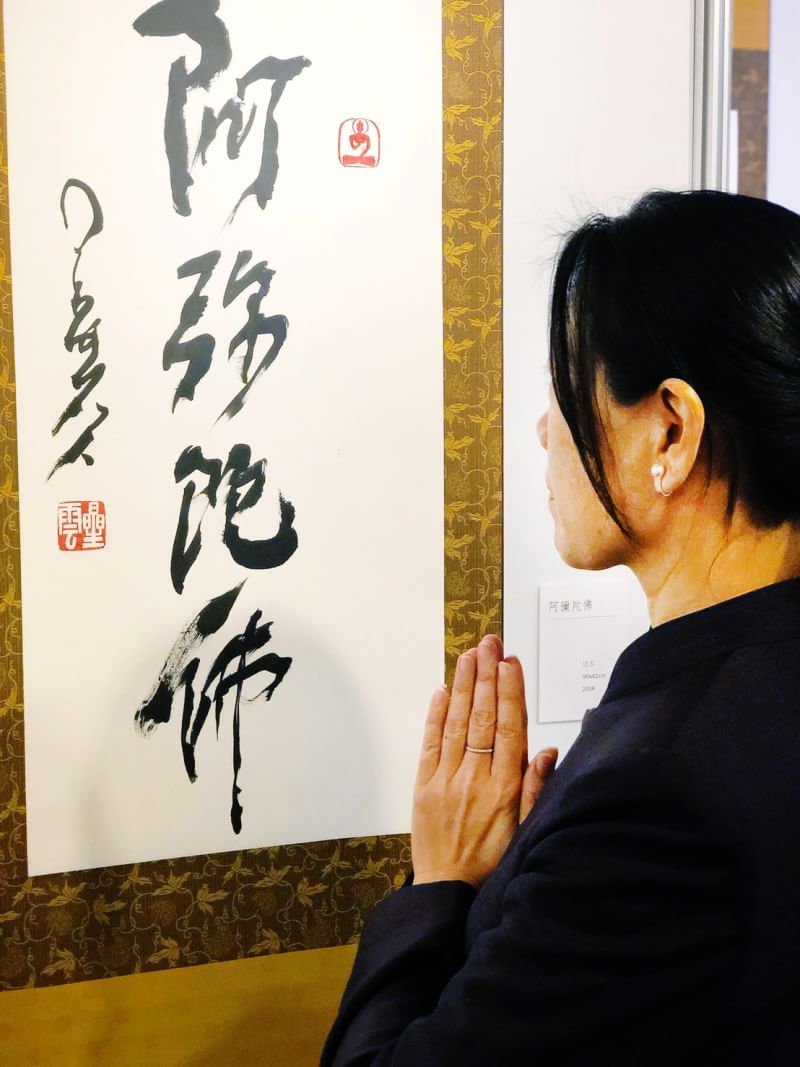 阿弥陀佛
星雲
阿彌陀佛
紙本
90x42cm
2014